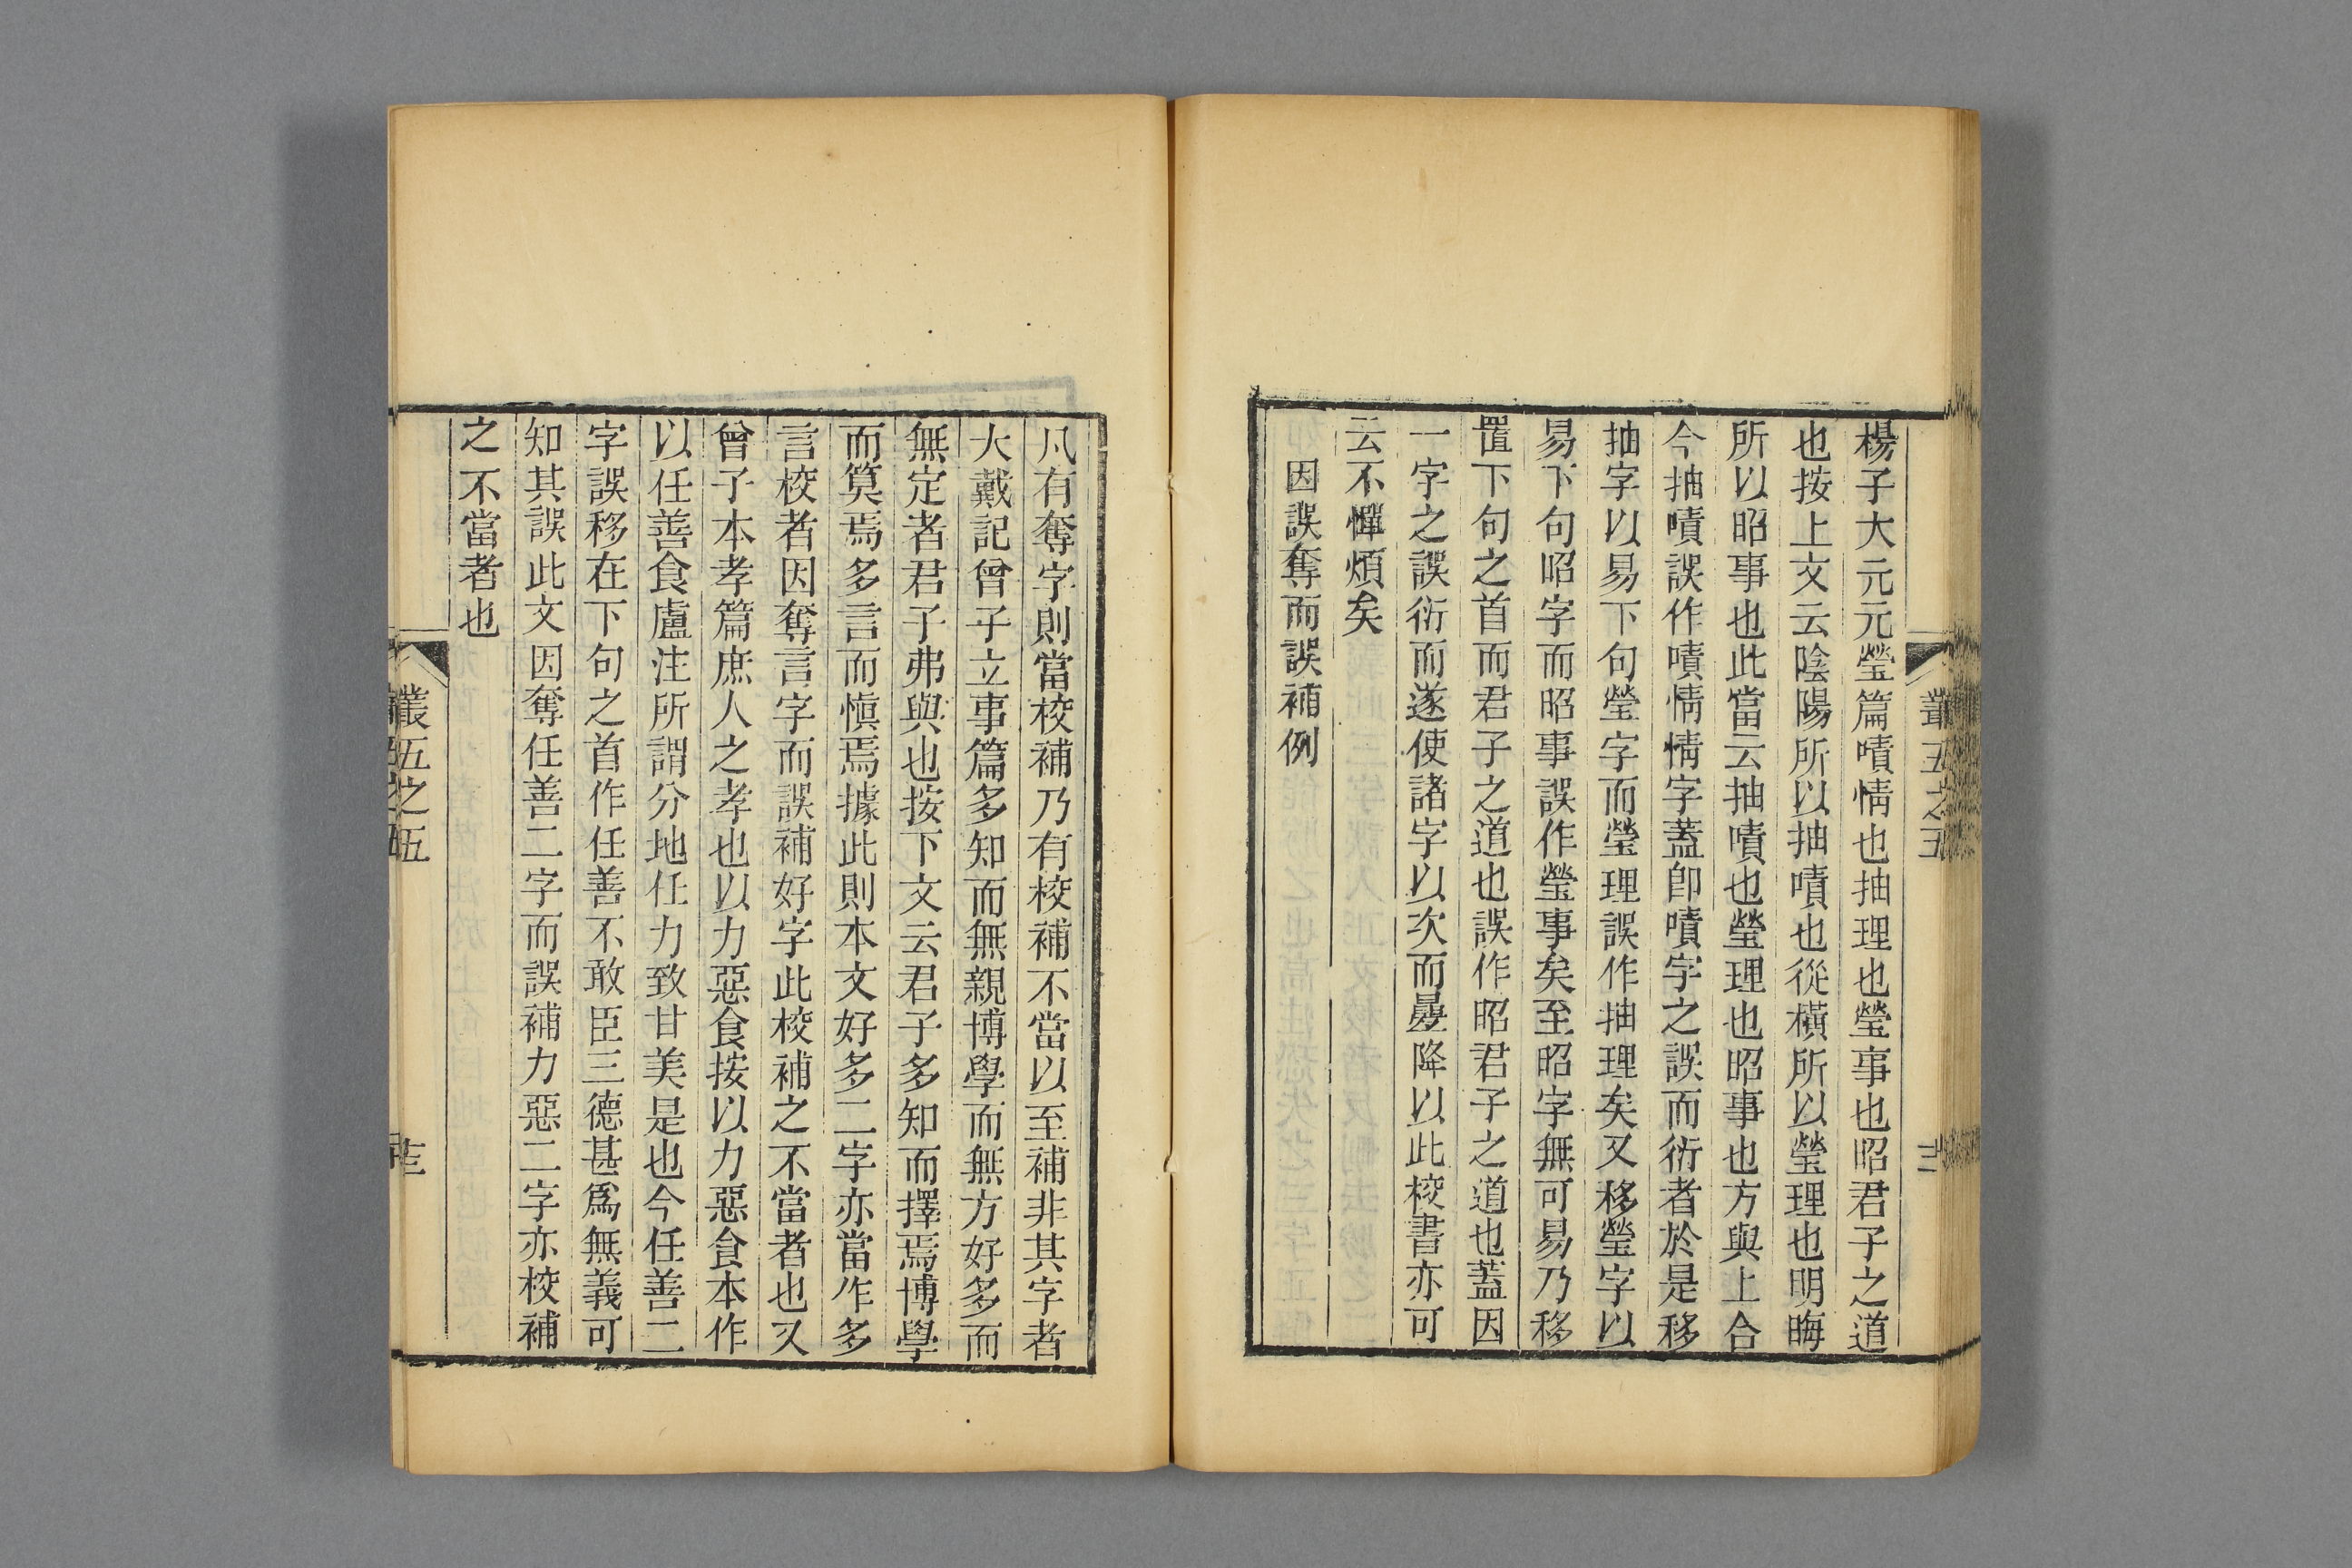 楊子大元元瑩篇嘖情也抽理也瑩事也昭君子之道
也按上文云陰陽所以抽嘖也從橫所以瑩理也明晦
所以昭事也此當云抽嘖也瑩理也昭事也方與上合
今抽嘖誤作嘖情情字蓋卽嘖字之誤而衍者於是移
抽字以易下句瑩字而瑩理誤作抽理矣又移瑩字以
易下句昭字而昭事誤作瑩事矣至昭字無可易乃移
置下句之首而君子之道也誤作昭君子之道也蓋因
一字之誤衍而遂使諸字以次而㬪降以此校書亦可
云不憚煩矣
因誤奪而誤補例
叢五之五
凡有奪字則當校補乃有校補不當以至補非其字者
大戴記曾子立事篇多知而無親博學而無方好多而
無定者君子弗與也按下文云君子多知而擇焉博學
而筭焉多言而愼焉據此則本文好多二字亦當作多
言校者因奪言字而誤補好字此校補之不當者也又
曾子本孝篇庶人之孝也以力惡食按以力惡食本作
以任善食盧注所謂分地任力致甘美是也今任善二
字誤移在下句之首作任善不敢臣三德甚爲無義可
知其誤此文因奪任善二字而誤補力惡二字亦校補
之不當者也
叢五之五